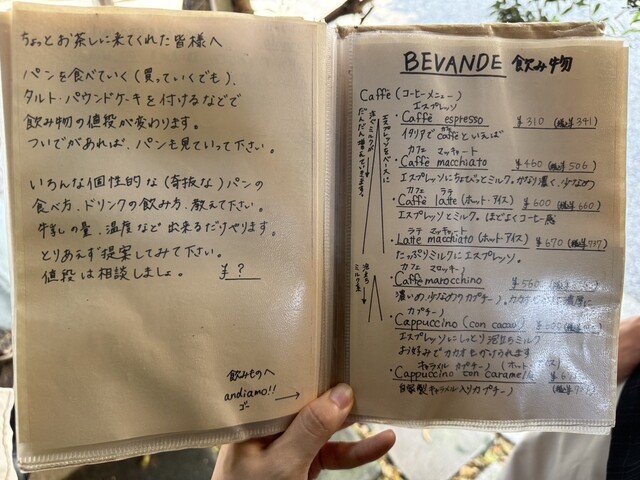 ちょっとお茶しに来てくれた皆様へ
パンを食べていく(買っていくでも)、
タルト・パウンドケーキを付けるなどで
飲み物の値段が変わります。
ついでがあれば、パンも見ていって下さい。
いろんな個性的な(奇抜な)パンの
食べ方、ドリンクの飲み方、教えて下さい。
牛乳の量、温度など出来るだけやります。
とりあえず提案してみて下さい。
値段は相談しましょ。 ¥?
飲みものへ
andiamo!!
ゴー →
BEVANDE 飲み物
Caffè (コーヒーメニュー)
エスプレッソをベースに
注ぐミルクが
だんだん増えていきます。
泡立ち
ミルク量
エスプレッソ
・Caffè espresso ¥310 (税込¥341)
イタリアでcaffèといえば
カフェ マッキャート
・Caffè macchiato ¥460 (税込¥506)
エスプレッソにちょびっとミルク。かなり濃く、少なめ
カフェ ラテ
・Caffè latte (ホット・アイス) ¥600 (税込¥660)
エスプレッソとミルク。ほどよくコーヒー感
ラテ マッキャート
・Latte macchiato (ホット・アイス) ¥670 (税込¥737)
たっぷりミルクにエスプレッソ。
カフェ マロッキーノ
・Caffè marocchino ¥560
濃いめ、少なめのカプチーノ。
カプチーノ
・Cappuccino (con cacao)
エスプレッソにしっとり泡立ちミルク
お好みでカカオをかけられます
キャラメル カプチーノ (ホット・アイス)
・Cappuccino con caramello
自家製キャラメル入りカプチーノ